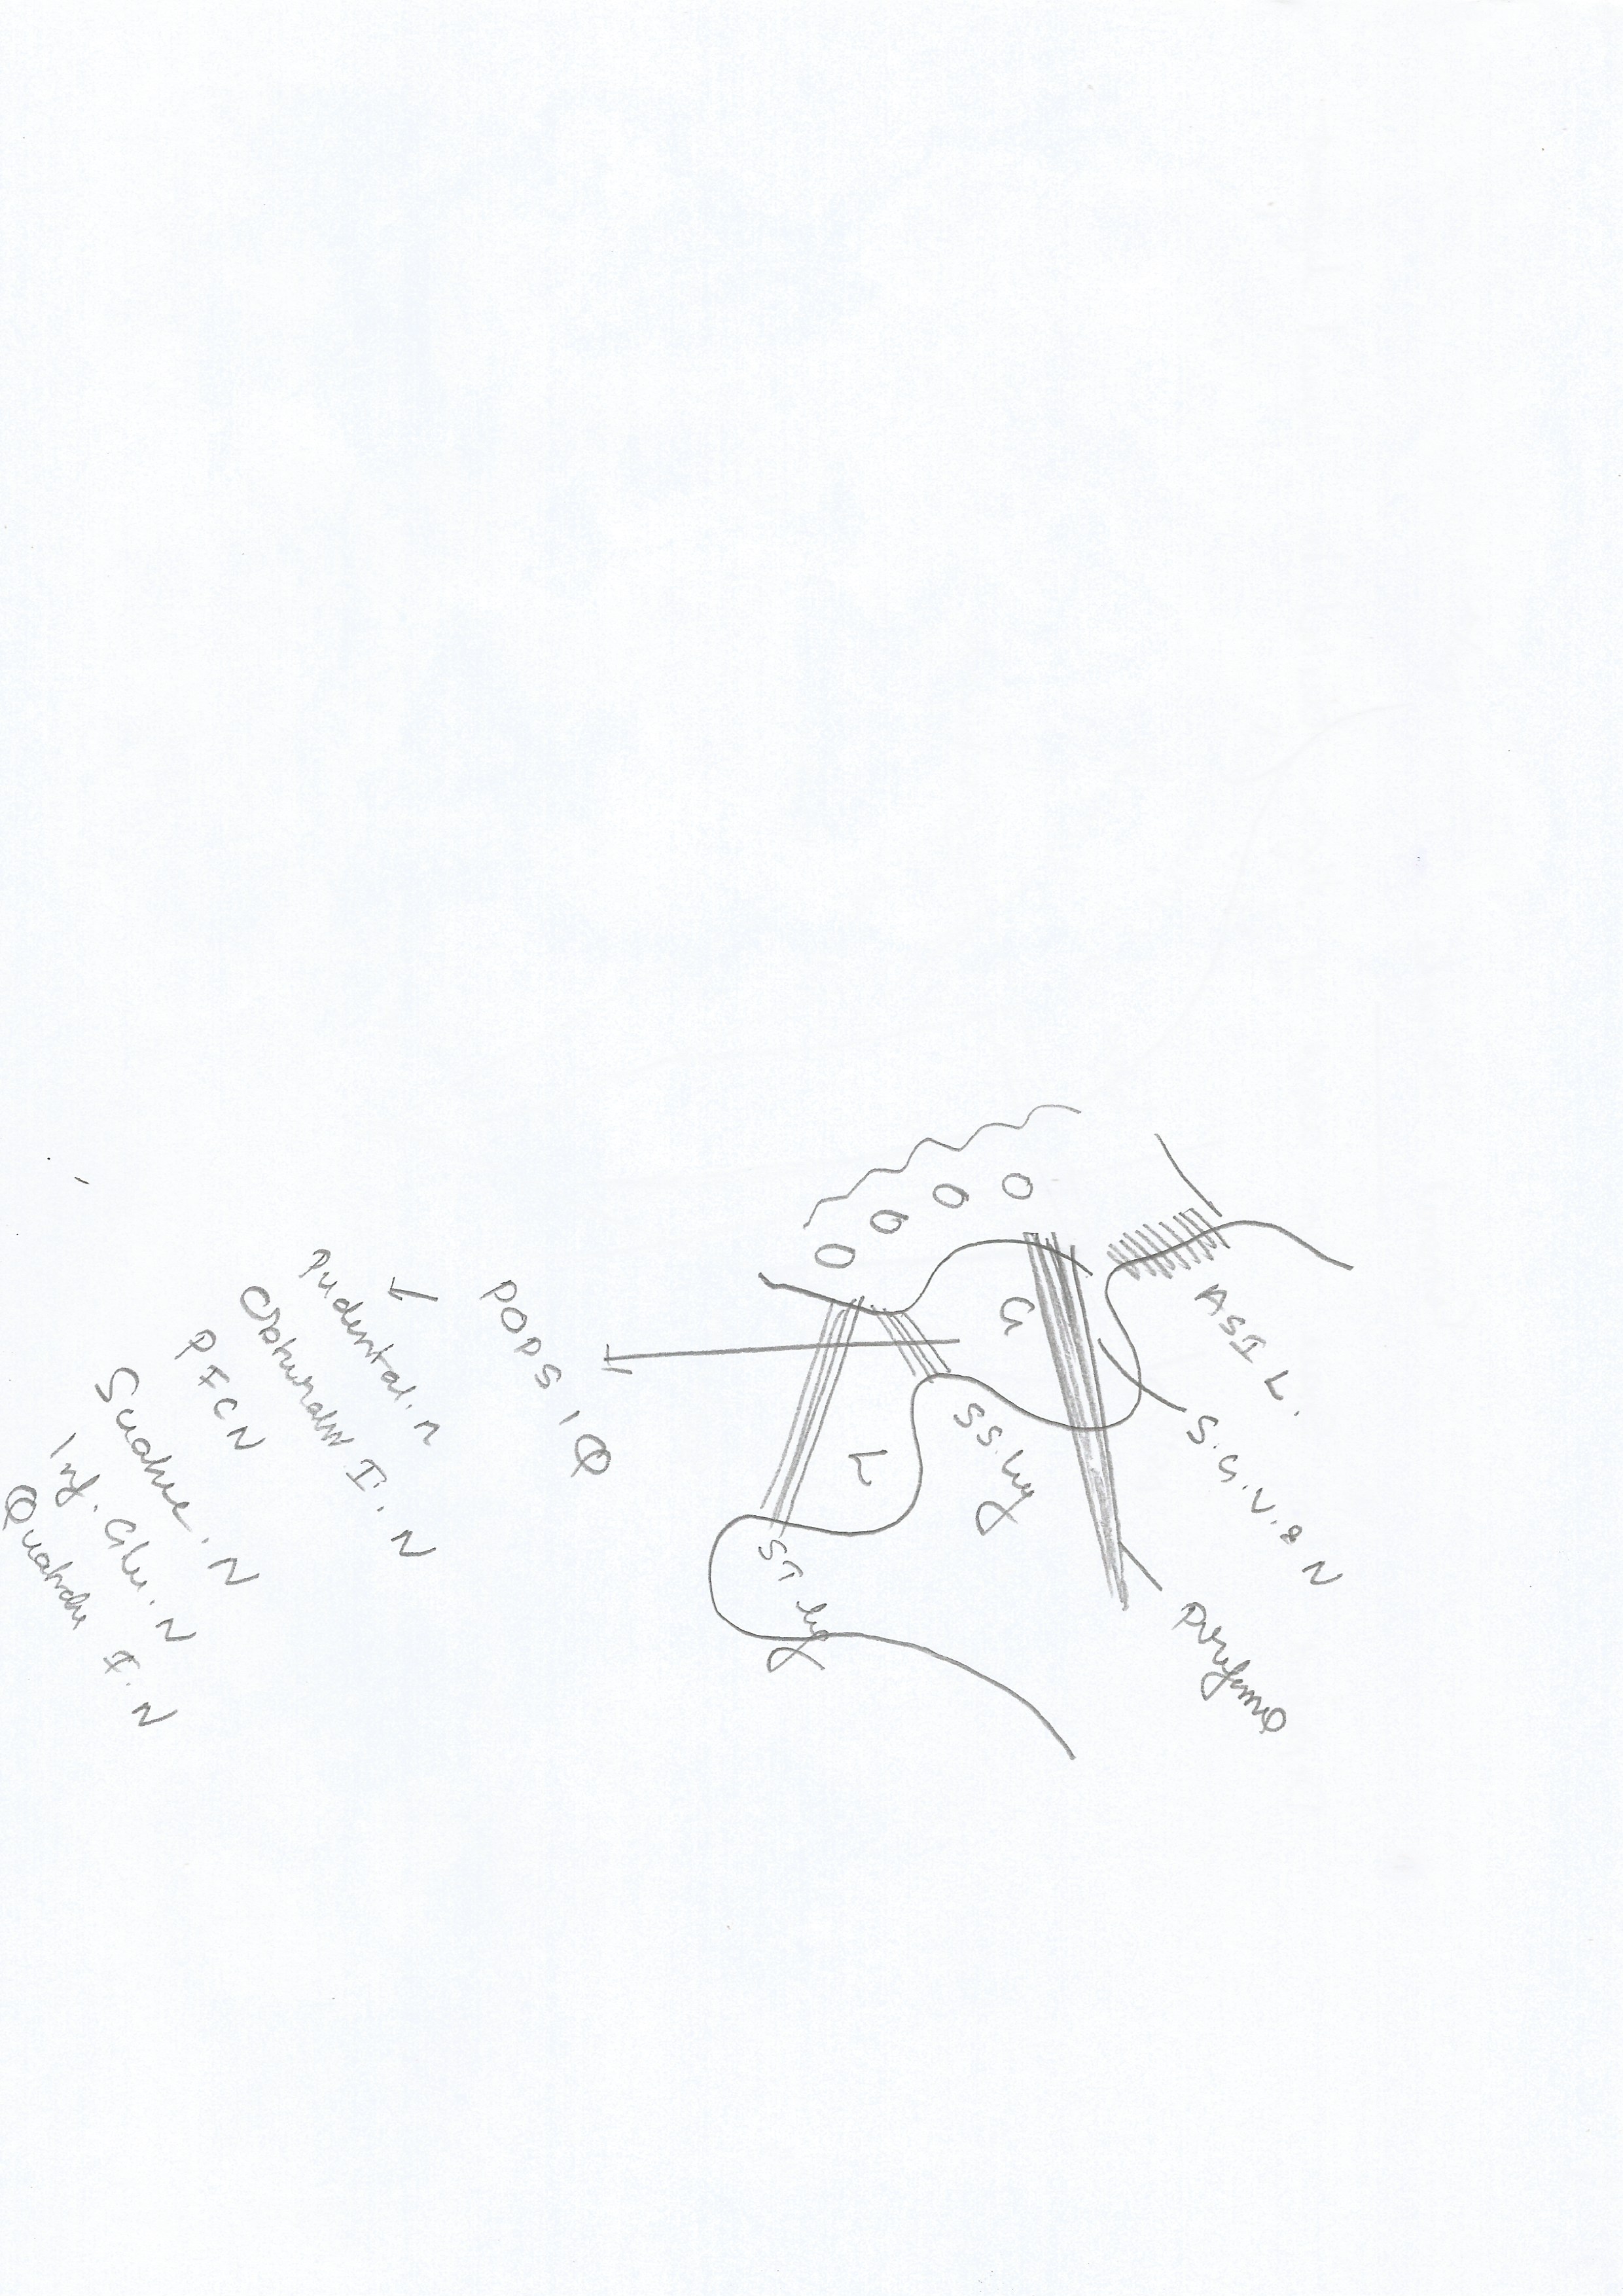 ASI L.
S.G.V. & N
Piryformo
G
SS. lig
L
ST lig
POPS IQ
Pudental. n
Obturator I. N
PFCN
Sciatic. N
Inf. Glu. N
Quadrate F. N